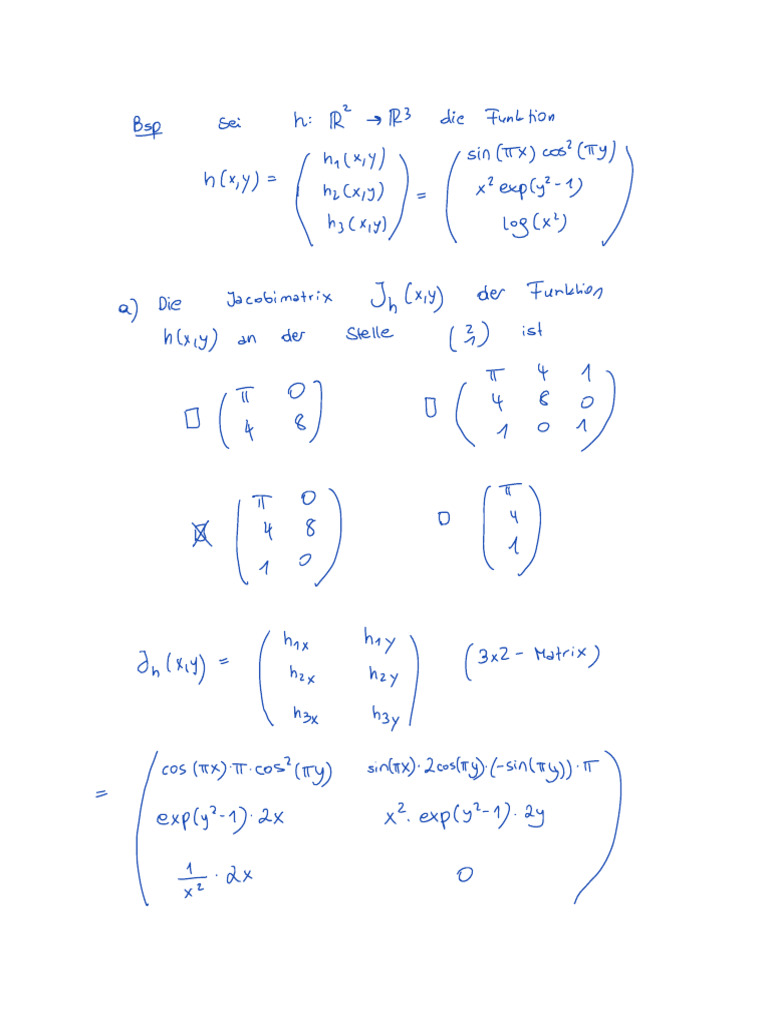 Bsp Sei h: ℝ² → ℝ³ die Funktion
h(x,y) = ( h₁(x,y) ) = ( sin(πx) cos²(πy) )
( h₂(x,y) ) ( x² exp(y²-1) )
( h₃(x,y) ) ( log(x²) )
a) Die Jacobimatrix J_h(x,y) der Funktion
h(x,y) an der Stelle (2 1) ist
☐ ( π 0 ) ☐ ( π 4 1 )
( 4 8 ) ( 4 8 0 )
( 1 0 1 )
☒ ( π 0 ) ☐ ( π )
( 4 8 ) ( 4 )
( 1 0 ) ( 1 )
J_h(x,y) = ( h₁x h₁y ) (3x2 - Matrix)
( h₂x h₂y )
( h₃x h₃y )
= ( cos(πx)·π·cos²(πy) sin(πx)·2cos(πy)·(-sin(πy))·π )
( exp(y²-1)·2x x²·exp(y²-1)·2y )
( 1/x² · 2x 0 )